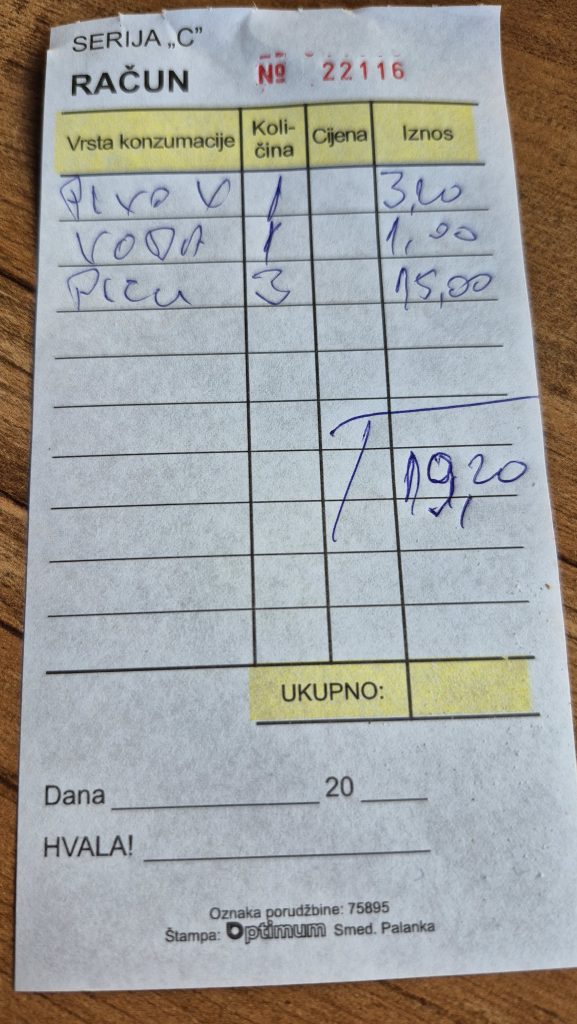 SERIJA „C”
RAČUN № 22116
Vrsta konzumacije Količina Cijena Iznos
PIVO V 1 3,20
VODA 1 1,00
PICU 3 15,00
19,20
UKUPNO:
Dana 20
HVALA!
Oznaka porudžbine: 75895
Štampa: Optimum Smed. Palanka